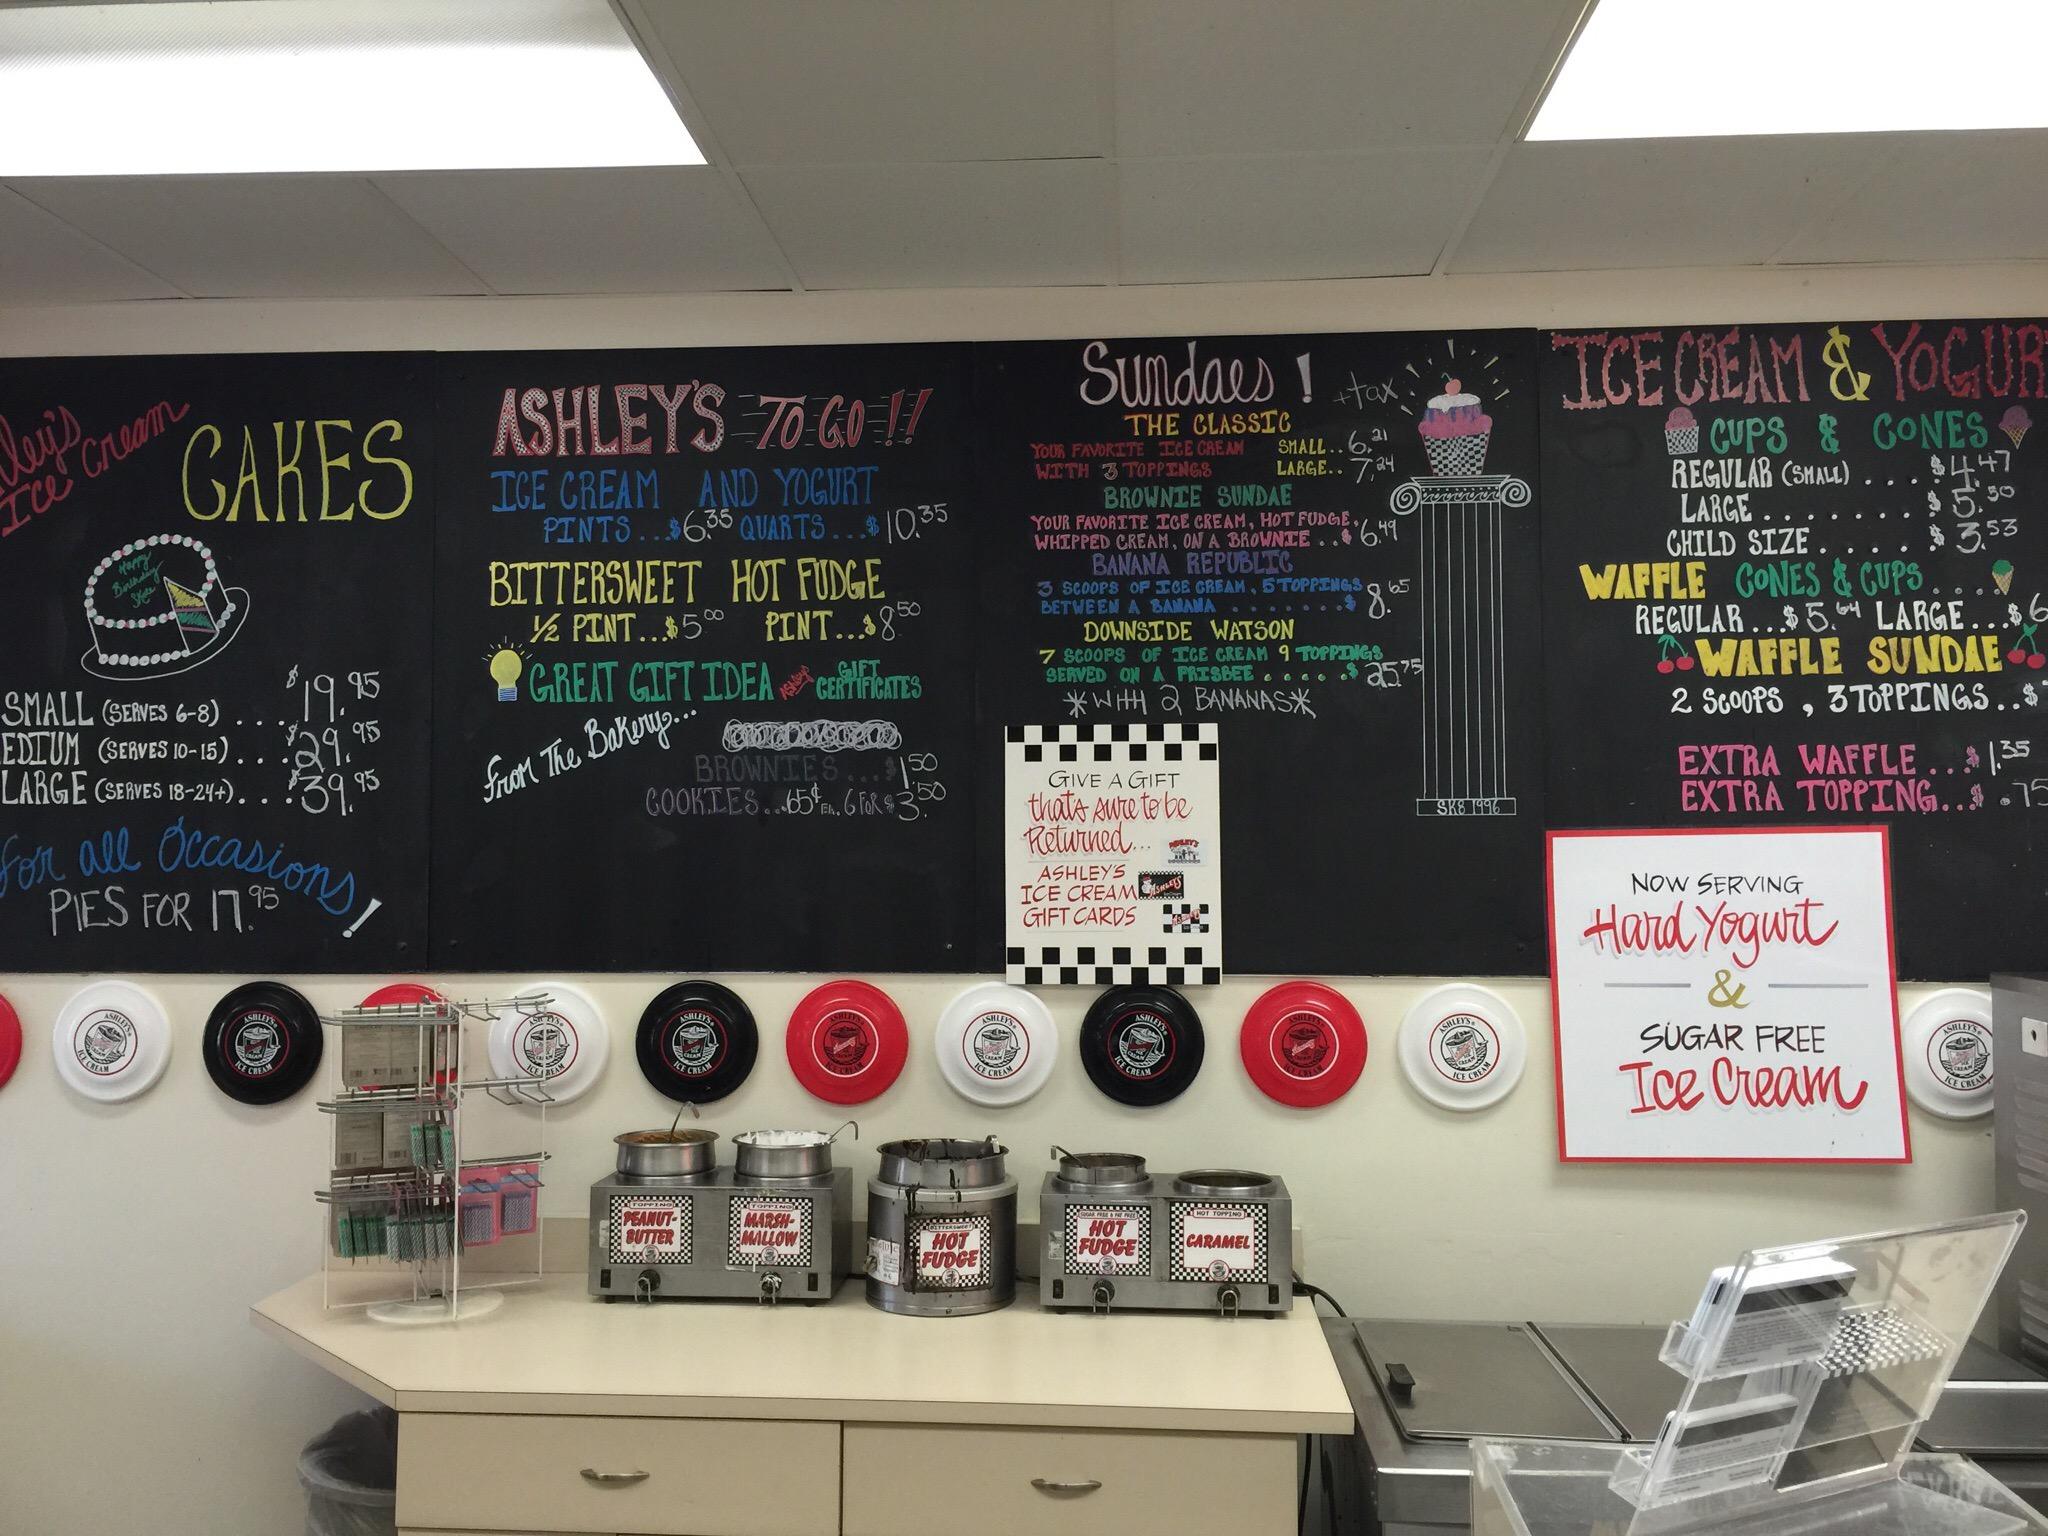 Ice Cream
CAKES
Happy
Birthday
SMALL (SERVES 6-8) ... $19.95
EDIUM (SERVES 10-15) ... $29.95
LARGE (SERVES 18-24+) ... $39.95
For all Occasions!
PIES FOR 17.95
ASHLEY'S TO GO!!
ICE CREAM AND YOGURT
PINTS...$6.35 QUARTS...$10.35
BITTERSWEET HOT FUDGE
½ PINT...$5.00 PINT...$8.50
GREAT GIFT IDEA Ashley's GIFT CERTIFICATES
From The Bakery...
BROWNIES...$1.50
COOKIES...65¢ EA. 6 FOR $3.50
Sundaes! +tax
THE CLASSIC
YOUR FAVORITE ICE CREAM SMALL..6.21
WITH 3 TOPPINGS LARGE..7.24
BROWNIE SUNDAE
YOUR FAVORITE ICE CREAM, HOT FUDGE,
WHIPPED CREAM, ON A BROWNIE...$6.49
BANANA REPUBLIC
3 SCOOPS OF ICE CREAM, 5 TOPPINGS
BETWEEN A BANANA.......$8.65
DOWNSIDE WATSON
7 SCOOPS OF ICE CREAM 9 TOPPINGS
SERVED ON A FRISBEE.....$25.75
*WITH 2 BANANAS*
SK8 1996
GIVE A GIFT
thats sure to be
Returned...
ASHLEY'S
ICE CREAM
GIFT CARDS
ICE CREAM & YOGUR
CUPS & CONES
REGULAR (SMALL)....$4.47
LARGE.......$5.50
CHILD SIZE.....$3.53
WAFFLE CONES & CUPS....
REGULAR...$5.64 LARGE...$6
WAFFLE SUNDAE
2 SCOOPS, 3 TOPPINGS..$
EXTRA WAFFLE...$1.35
EXTRA TOPPING...$.75
NOW SERVING
Hard Yogurt
&
SUGAR FREE
Ice Cream
ASHLEY'S
ICE CREAM
ASHLEY'S
ICE CREAM
ASHLEY'S
ICE CREAM
ASHLEY'S
ICE CREAM
ASHLEY'S
ICE CREAM
ASHLEY'S
ICE CREAM
ASHLEY'S
ICE CREAM
ASHLEY'S
ICE CREAM
ASHLEY'S
ICE CREAM
ASHLEY'S
ICE CREAM
TOPPING
PEANUT-
BUTTER
TOPPING
MARSH-
MALLOW
BITTERSWEET
HOT
FUDGE
SUGAR FREE & FAT FREE
HOT
FUDGE
HOT TOPPING
CARAMEL